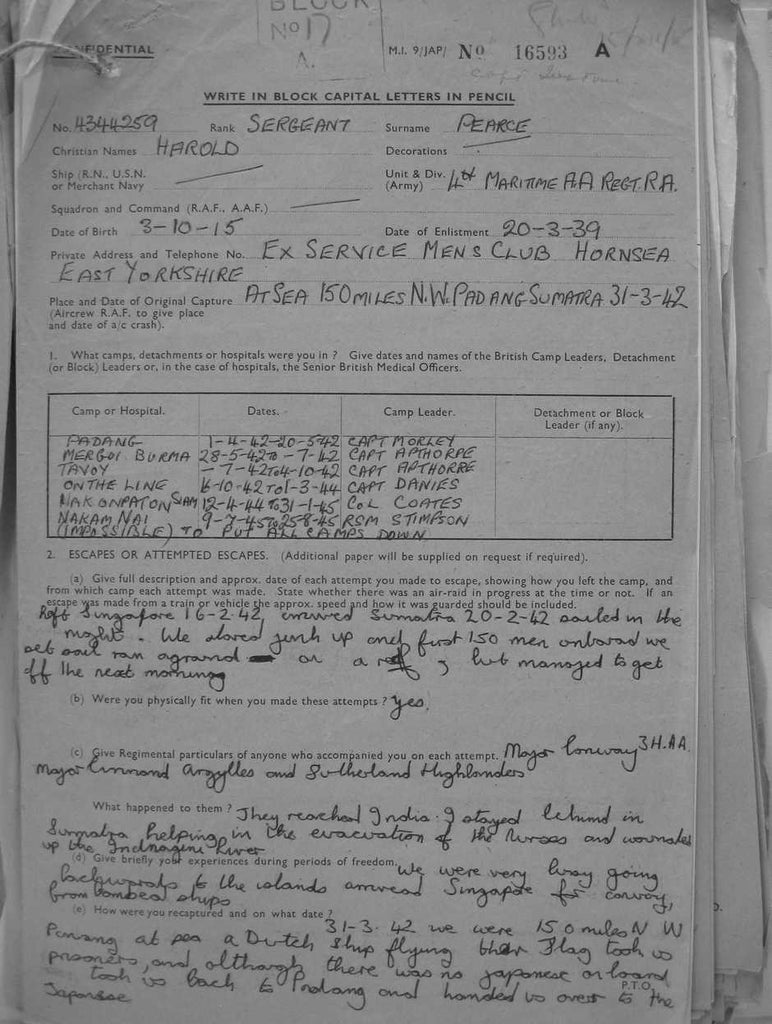 BLOCK
No 17
A.
CONFIDENTIAL
M.I. 9/JAP/ No 16593 A
WRITE IN BLOCK CAPITAL LETTERS IN PENCIL
No. 4344259 Rank SERGEANT Surname PEARCE
Christian Names HAROLD Decorations
Ship (R.N., U.S.N. or Merchant Navy
Unit & Div. (Army) 4th MARITIME A A REGT. R.A.
Squadron and Command (R.A.F., A.A.F.)
Date of Birth 3-10-15 Date of Enlistment 20-3-39
Private Address and Telephone No. EX SERVICE MENS CLUB HORNSEA
EAST YORKSHIRE
Place and Date of Original Capture AT SEA 150 MILES N.W. PADANG SUMATRA 31-3-42
(Aircrew R.A.F. to give place
and date of a/c crash).
1. What camps, detachments or hospitals were you in ? Give dates and names of the British Camp Leaders, Detachment
(or Block) Leaders or, in the case of hospitals, the Senior British Medical Officers.
Camp or Hospital. Dates. Camp Leader. Detachment or Block
Leader (if any).
PADANG 1-4-42-20-5-42 CAPT MORLEY
MERGOI BURMA 28-5-42 to -7-42 CAPT APTHORPE
TAVOY -7-42 to 4-10-42 CAPT APTHORPE
ON THE LINE 6-10-42 TO 1-3-44 CAPT DANIES
NAKONPATON SIAM 12-4-44 TO 31-1-45 COL COATES
NAKAM NAI 9-7-45 TO 25-8-45 RSM STIMPSON
(IMPASSIBLE) TO PUT ALL CAMPS DOWN
2. ESCAPES OR ATTEMPTED ESCAPES. (Additional paper will be supplied on request if required).
(a) Give full description and approx. date of each attempt you made to escape, showing how you left the camp, and
from which camp each attempt was made. State whether there was an air-raid in progress at the time or not. If an
escape was made from a train or vehicle the approx. speed and how it was guarded should be included.
left Singapore 16-2-42, arrived Sumatra 20-2-42 sailed in the
night. We stored junk up and first 150 men onboard we
set sail ran aground on a reff but managed to get
off the next morning
(b) Were you physically fit when you made these attempts ? Yes,
(c) Give Regimental particulars of anyone who accompanied you on each attempt. Major Conway 3 H.A.A.
Major Argylles and Sutherland Highlanders
What happened to them ? They reached India. I stayed behind in
Surmatra helping in the evacuation of the Nurses and wounded
up the River
(d) Give briefly your experiences during periods of freedom. We were very busy going
backwards to the islands Singapore for convoy,
from bombed ships
(e) How were you recaptured and on what date ?
31-3-42 we were 150 miles N W
Penang at sea a Dutch ship flying their Flag took us
prisoners, and although there was no japanese onboard
took us back to Padang and handed us over to the
Japanese
P.T.O.